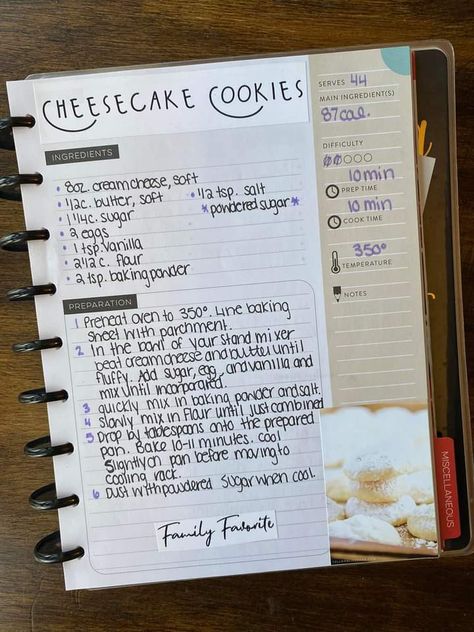 CHEESECAKE COOKIES
INGREDIENTS
• 8oz. cream cheese, soft
• 1/2 c. butter, soft
• 1 1/4 c. sugar
• 2 eggs
• 1 tsp. vanilla
• 2 1/2 c. flour
• 2 tsp. baking powder
• 1/2 tsp. salt
*powdered sugar*
PREPARATION
1 Preheat oven to 350°. Line baking
sheet with parchment.
2 In the bowl of your stand mixer
beat cream cheese and butter until
fluffy. Add sugar, egg, and vanilla and
mix until incorporated.
3 quickly mix in baking powder and salt.
4 slowly mix in flour until just combined
5 Drop by tablespoons onto the prepared
pan. Bake 10-11 minutes. cool
slightly on pan before moving to
cooling rack.
6 Dust with powdered sugar when cool.
Family Favorite
SERVES 44
MAIN INGREDIENT(S)
87 cal.
DIFFICULTY
10 min
PREP TIME
10 min
COOK TIME
350°
TEMPERATURE
NOTES
MISCELLANEOUS